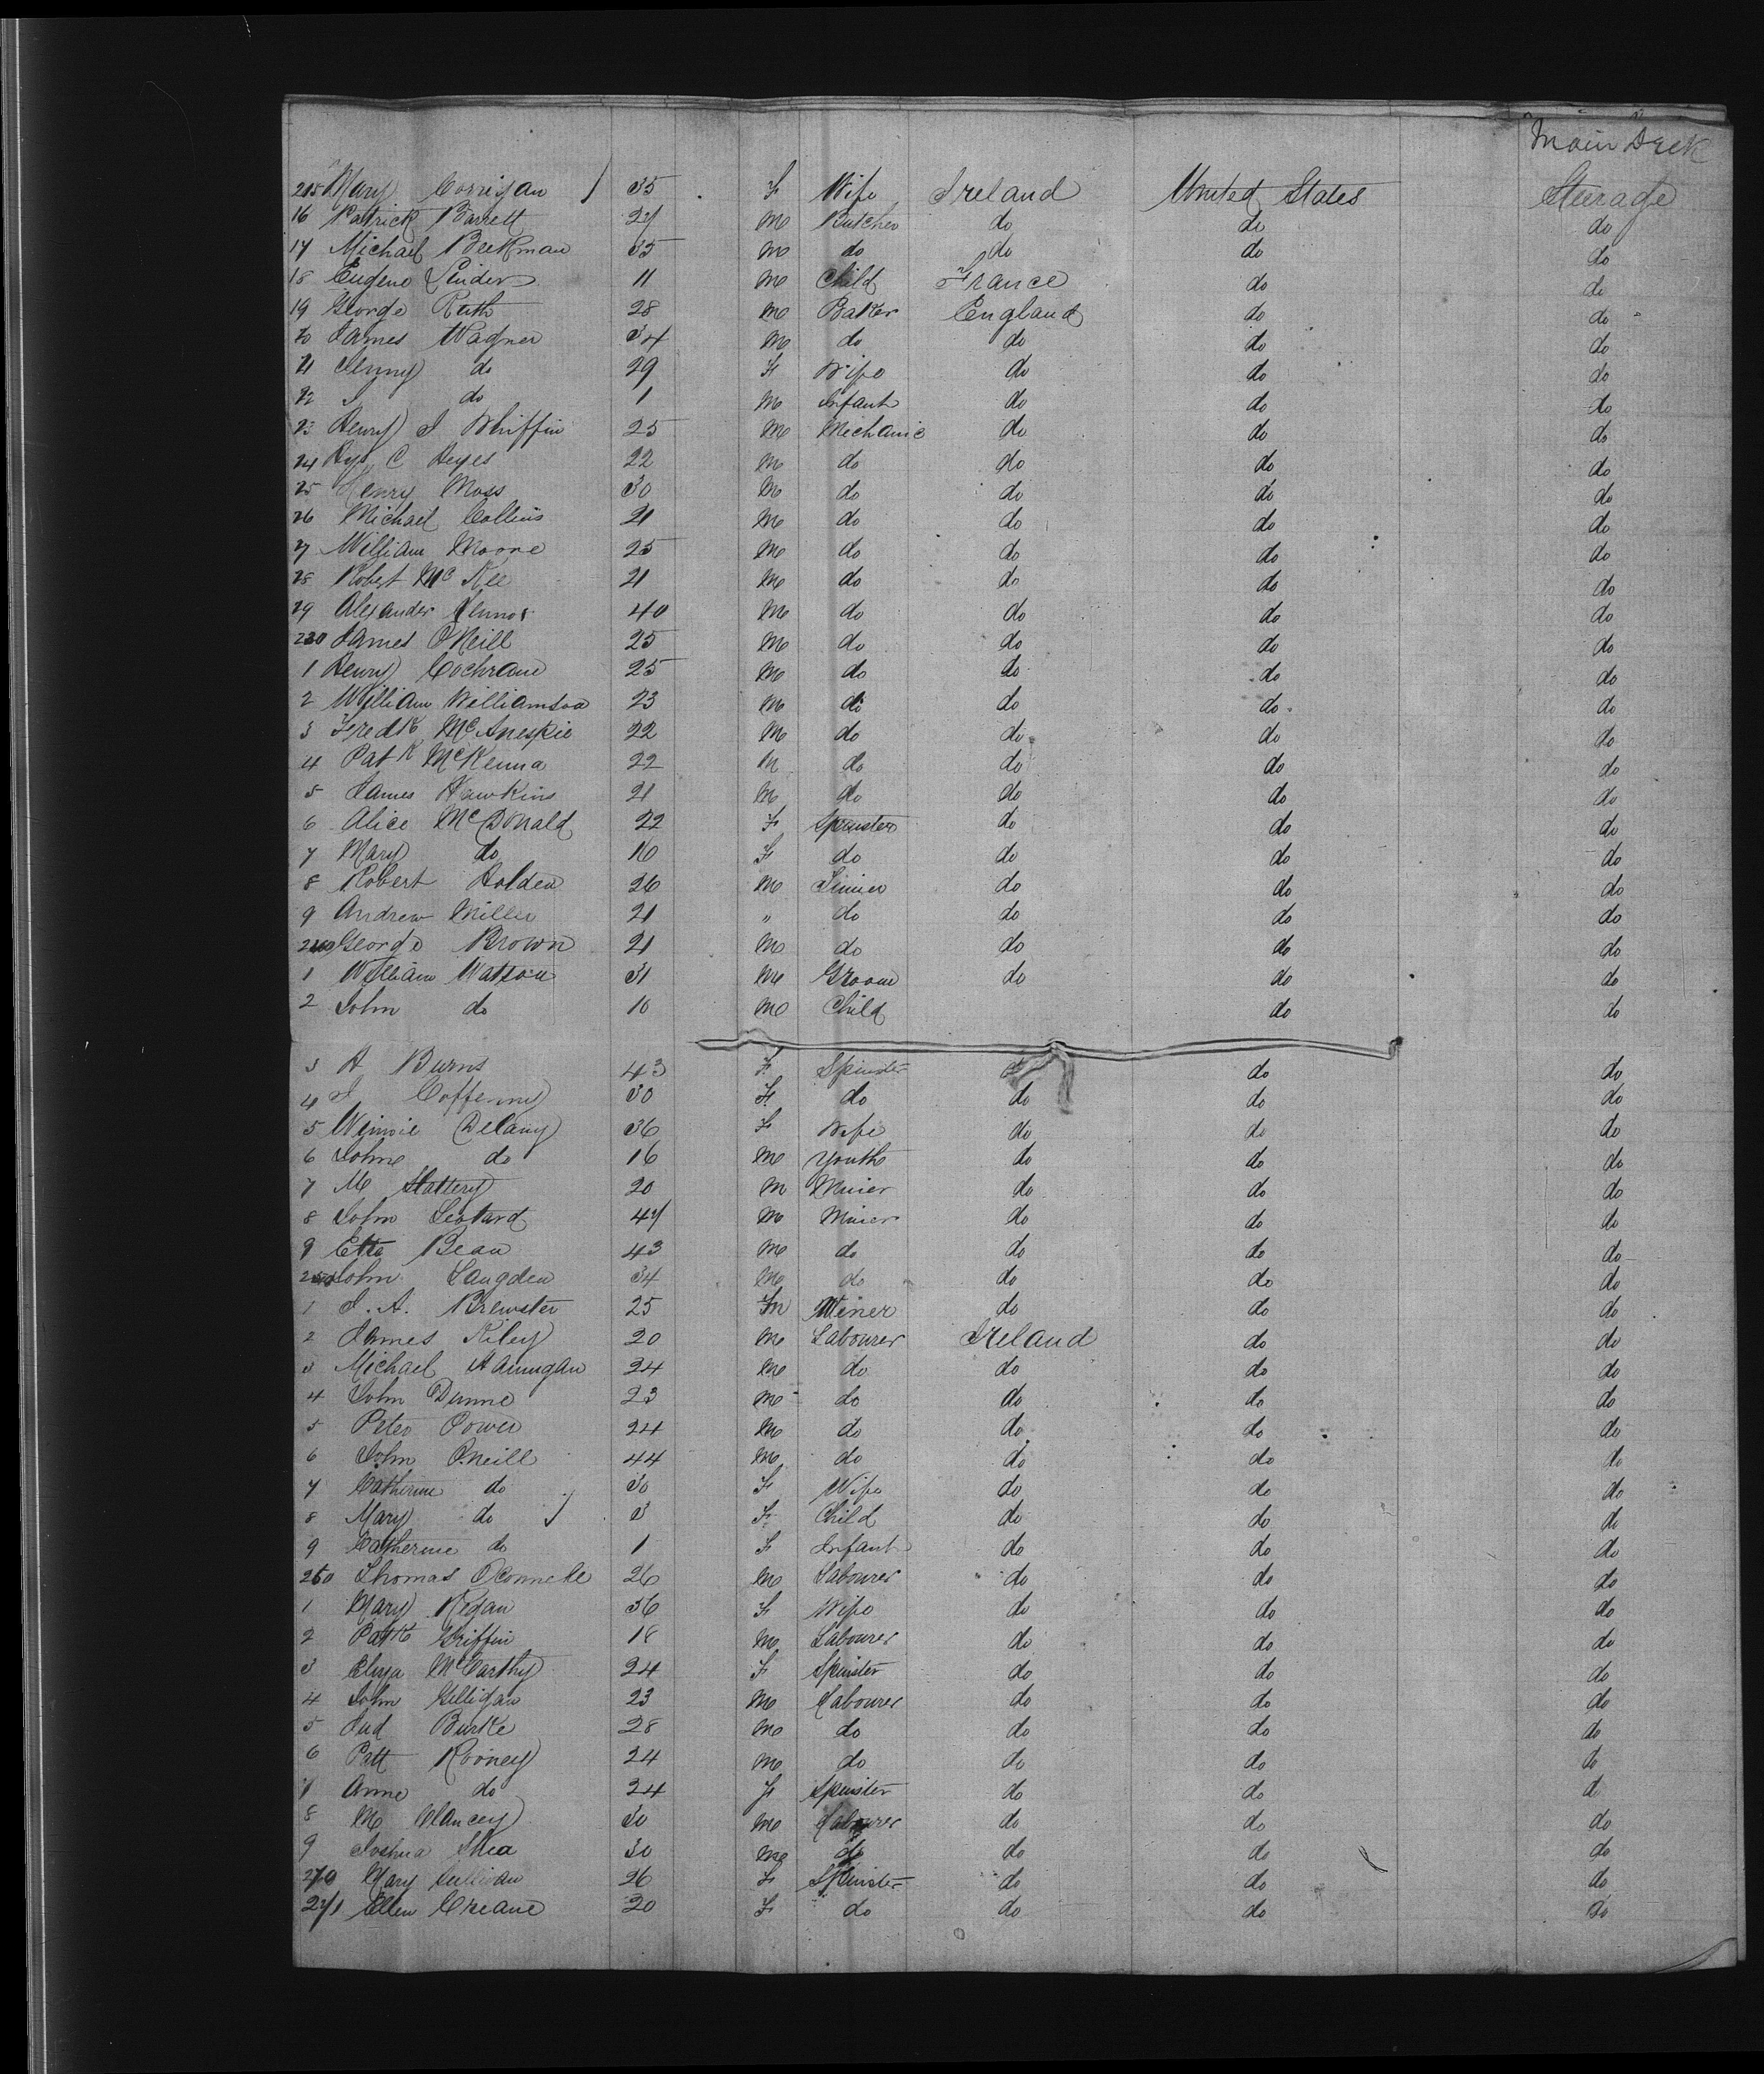 Main Deck
215 Mary Corrigan 35 F Wife Ireland United States Steerage
16 Patrick Barrett 27 M Butcher do do do
17 Michael Beekman 35 M do do do do
18 Eugene Linder 11 M Child France do do
19 George Ruth 28 M Baker England do do
20 James Wagner 34 M do do do do
21 Jenny do 29 F Wife do do do
22 J do 1 M Infant do do do
23 Henry J Whiffin 25 M Mechanic do do do
24 C Heyes 22 M do do do do
25 Henry Moss 30 M do do do do
26 Michael Collins 21 M do do do do
27 William Moore 25 M do do do do
28 Robert McKee 21 M do do do do
29 Alexander 40 M do do do do
230 James O'Neill 25 M do do do do
1 Henry Cochrane 25 M do do do do
2 William Williamson 23 M do do do do
3 Fredk McAneskie 22 M do do do do
4 Patk McKenna 22 M do do do do
5 James Hawkins 21 M do do do do
6 Alice McDonald 22 F Spinster do do do
7 Mary do 16 F do do do do
8 Robert Holden 26 M do do do
9 Andrew Miller 21 " do do do do
240 George Brown 21 M do do do do
1 William Watson 31 M Groom do do do
2 John do 10 M Child do do
3 A Burns 43 F Spinster do do do
4 J 30 F do do do do
5 Winnie Delany 36 F Wife do do do
6 John do 16 M Youth do do do
7 M Slattery 20 M Miner do do do
8 John Leotard 47 M Miner do do do
9 Etto Bean 43 M do do do do
250 John Langden 34 M do do do do
1 J. A. Brewster 25 M Miner do do do
2 James Riley 20 M Labourer Ireland do do
3 Michael Hannigan 24 M do do do do
4 John Dunne 23 M do do do do
5 Peter Power 24 M do do do do
6 John O'neill 44 M do do do do
7 Catherine do 30 F Wife do do do
8 Mary do 3 F Child do do do
9 Catherine do 1 F Infant do do do
260 Thomas Oconnell 26 M Labourer do do do
1 Mary Regan 36 F Wife do do do
2 Patk Griffin 18 M Labourer do do do
3 Eliza McCarthy 24 F Spinster do do do
4 John Gilligan 23 M Labourer do do do
5 Burke 28 M do do do do
6 Patt Rooney 24 M do do do do
7 Anne do 24 F Spinster do do do
8 M Clancey 30 M Labourer do do do
9 Joshua Shea 30 M do do do do
270 Mary Sullivan 26 F Spinster do do do
271 Ellen Creane 20 F do do do do